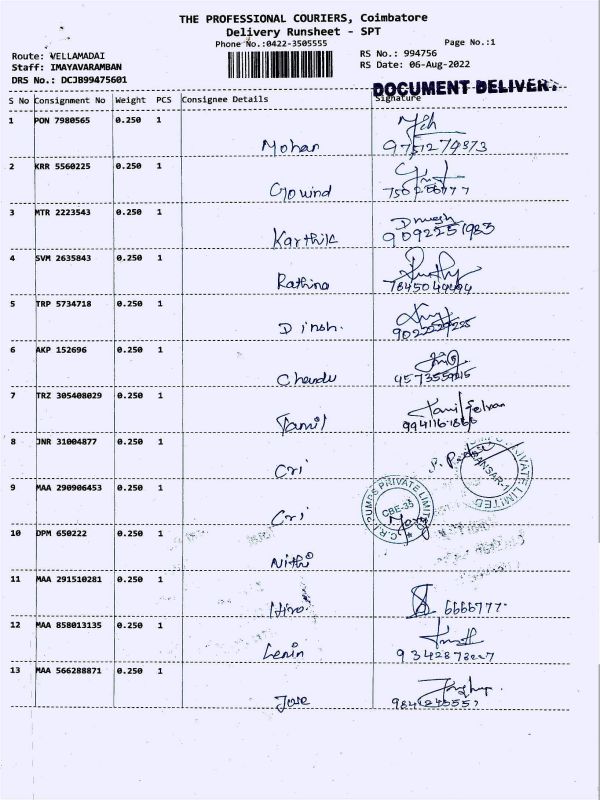 THE PROFESSIONAL COURIERS, Coimbatore
Delivery Runsheet - SPT
Phone No.:0422-3505555
Page No.:1
Route: VELLAMADAI
RS No.: 994756
Staff: IMAYAVARAMBAN
RS Date: 06-Aug-2022
DRS No.: DCJB99475601
DOCUMENT DELIVERY
S No Consignment No Weight PCS Consignee Details Signature
1 PON 7980565 0.250 1
Mohan
2 KRR 5560225 0.250 1
Gowind
3 MTR 2223543 0.250 1
Dinesh
Karthik 9092251983
4 SVM 2635843 0.250 1
Rathina
5 TRP 5734718 0.250 1
Dinsh.
6 AKP 152696 0.250 1
Chandu
7 TRZ 305408029 0.250 1
Tamil Selvan
Tamil
8 JNR 31004877 0.250 1
Cri
9 MAA 290906453 0.250 1
Cri
C.R.I. PUMPS PRIVATE LIMITED
CBE-35
PRIVATE LIMITED
10 DPM 650222 0.250 1
Nithi
11 MAA 291510281 0.250 1
Hiro 6666777
12 MAA 858013135 0.250 1
Lenin
13 MAA 566288871 0.250 1
Jose